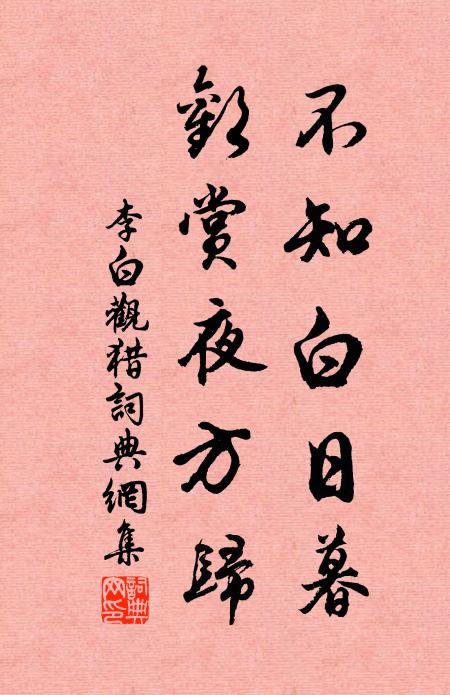 不知白日暮
歡賞夜方歸
李白觀猎詞典網集
詞典網印